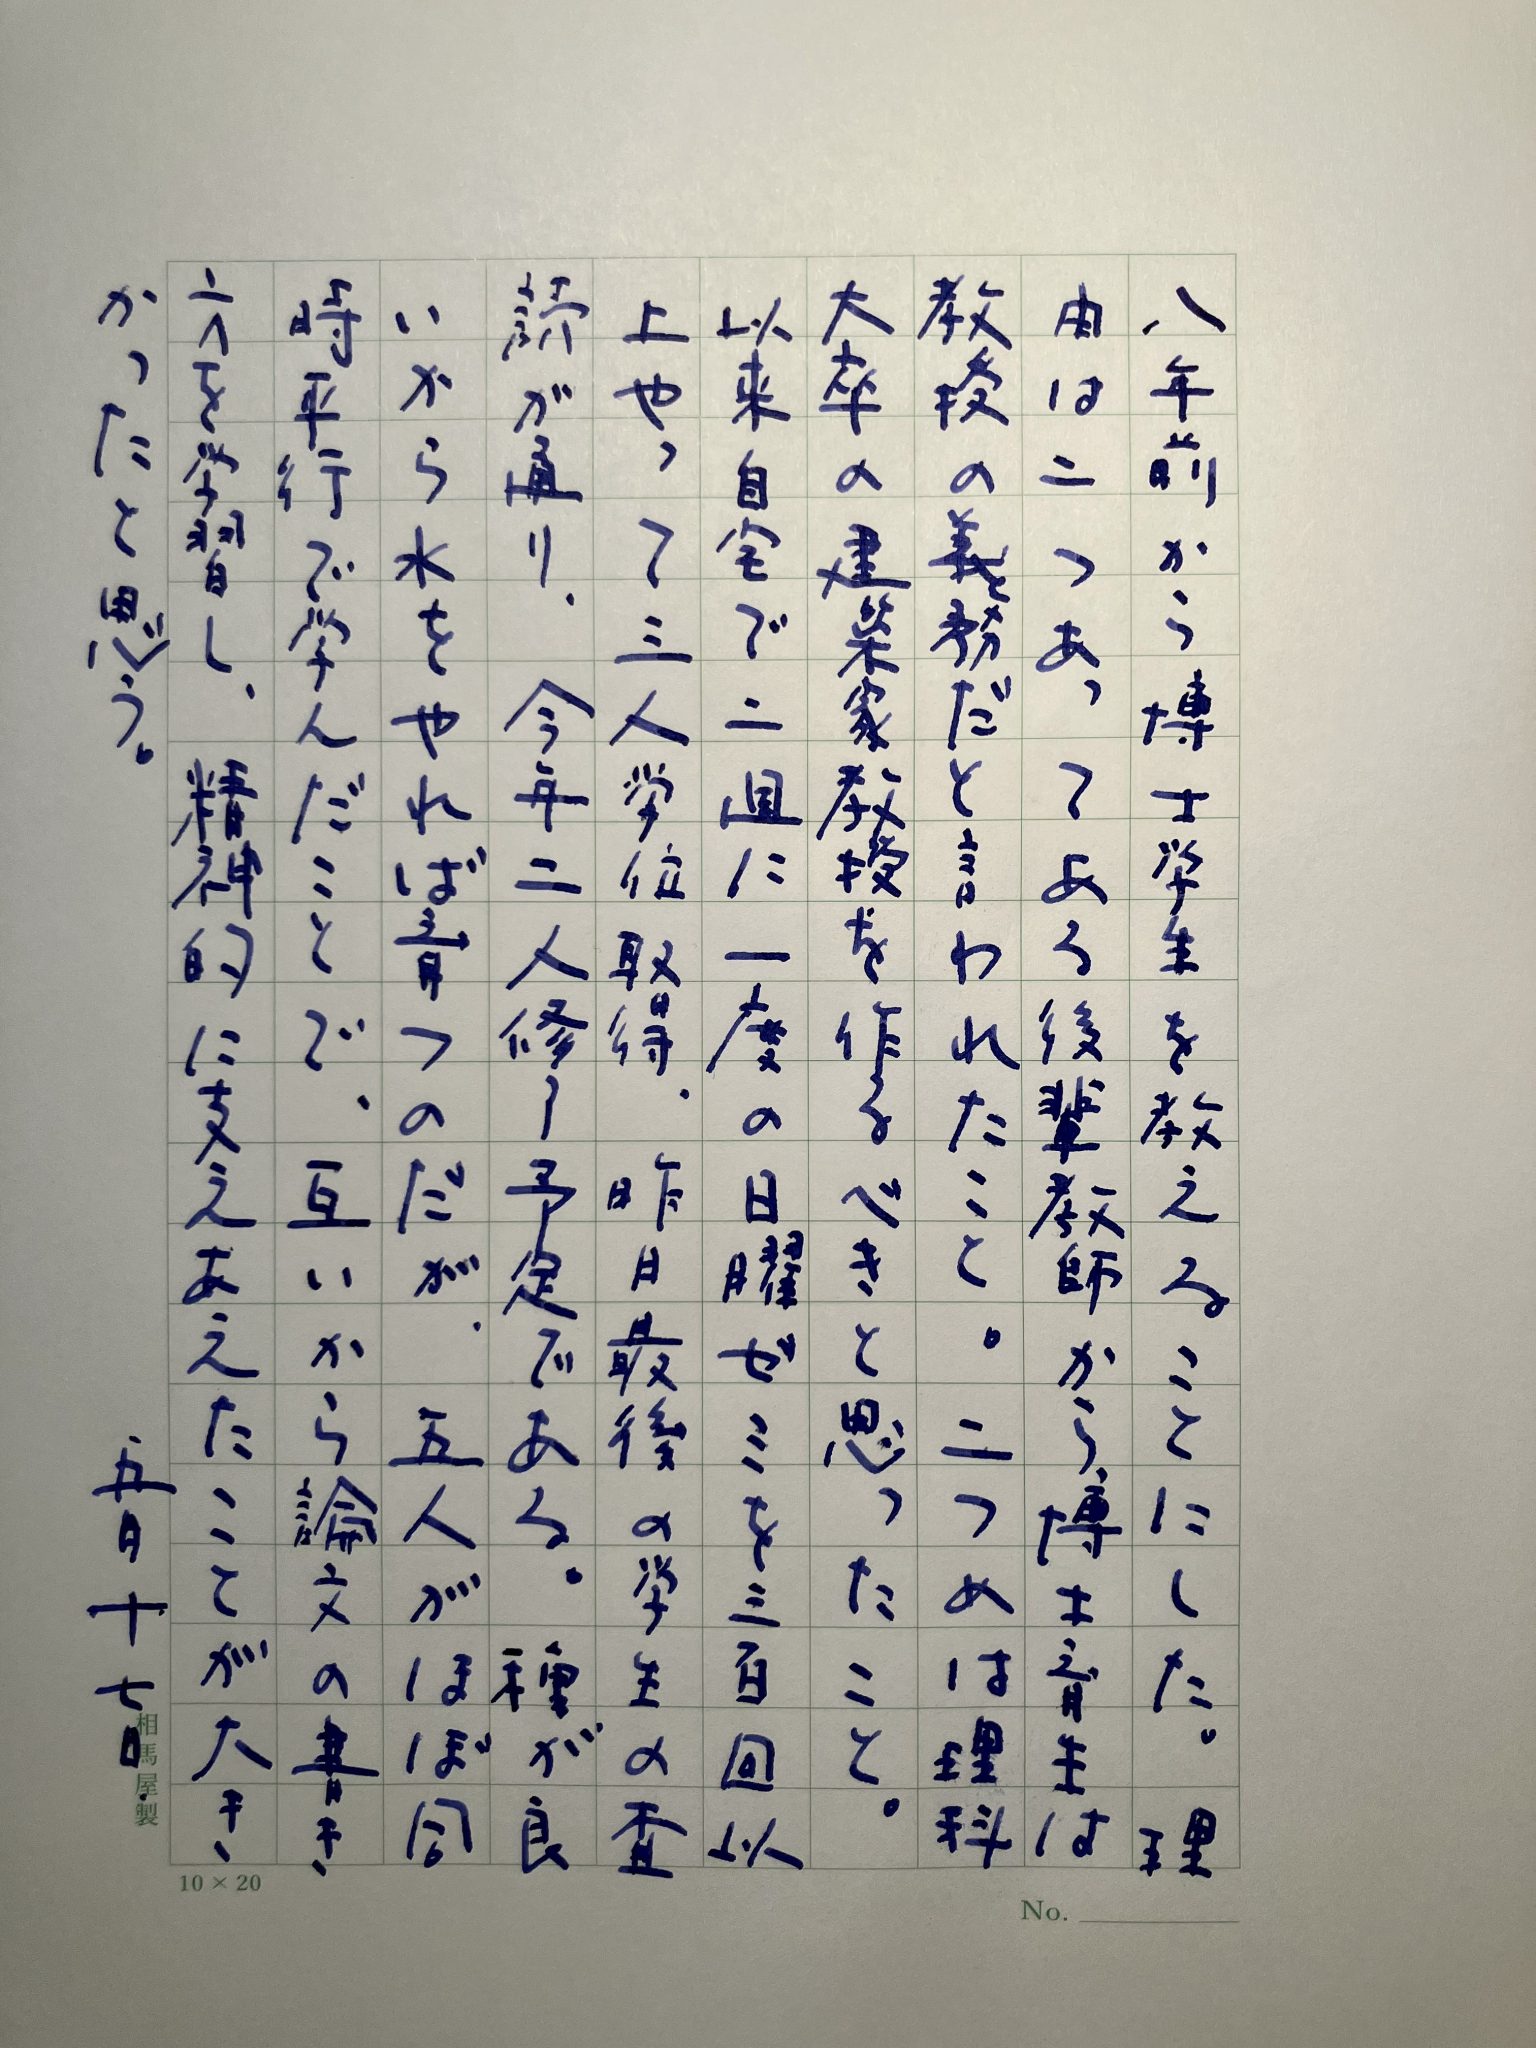 八年前から博士学生を教えることにした。理
由は二つあってある後輩教師から、博士育生は
教授の義務だと言われたこと。二つめは理科
大卒の建築家教授を作るべきと思ったこと。
以来自宅で二週に一度の日曜ゼミを三百回以
上やって三人学位取得、昨日最後の学生の査
読が通り、今年二人修了予定である。種が良
いから水をやれば育つのだが、五人がほぼ同
時平行で学んだことで、互いから論文の書き
方を学習し、精神的に支えあえたことが大き
かったと思う。
五月十七日
相馬屋製
10×20
No.